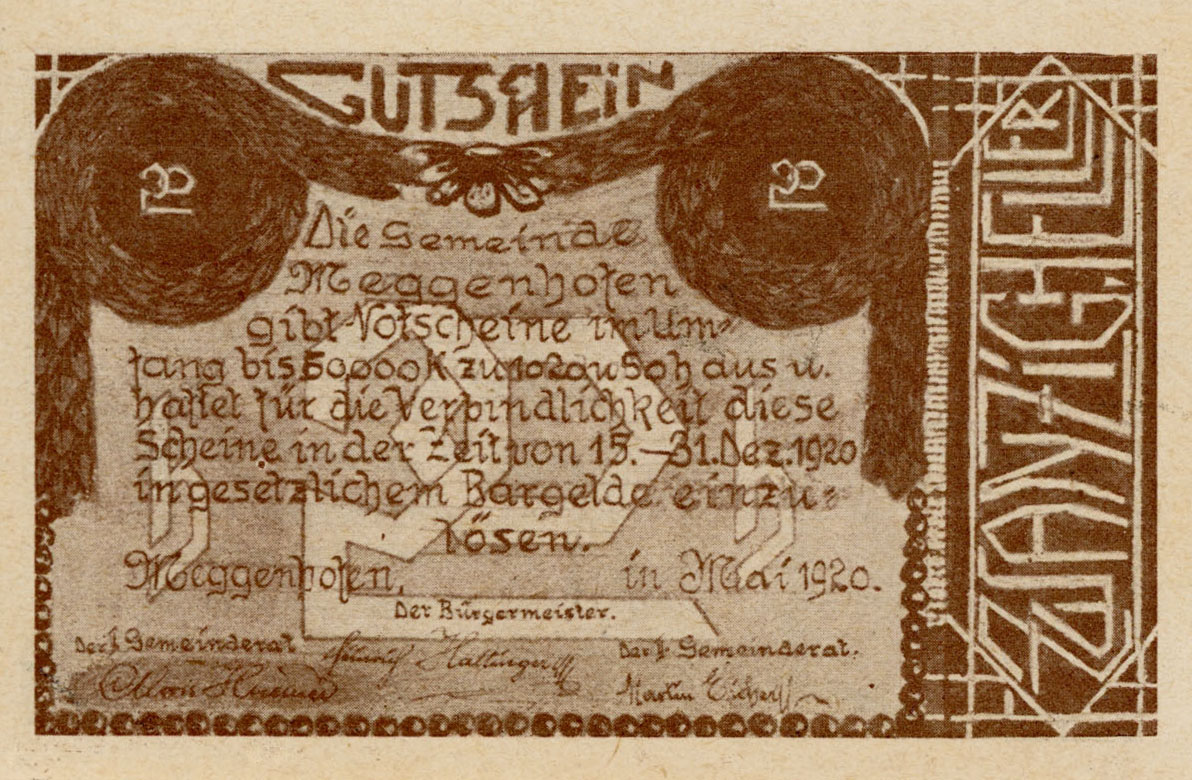 GUTSCHEIN
20
20
Die Gemeinde
Meggenhofen
gibt Notscheine im Um-
fang bis 50000K zu 10 20 u 50 h aus u.
haftet für die Verbindlichkeit diese
Scheine in der Zeit von 15.–31. Dez. 1920
in gesetzlichem Bargelde einzu-
lösen.
Meggenhofen, in Mai 1920.
Der Bürgermeister.
Der I Gemeinderat
Der I. Gemeinderat.
Heinrich
Martin
ZWANZIG HELLER